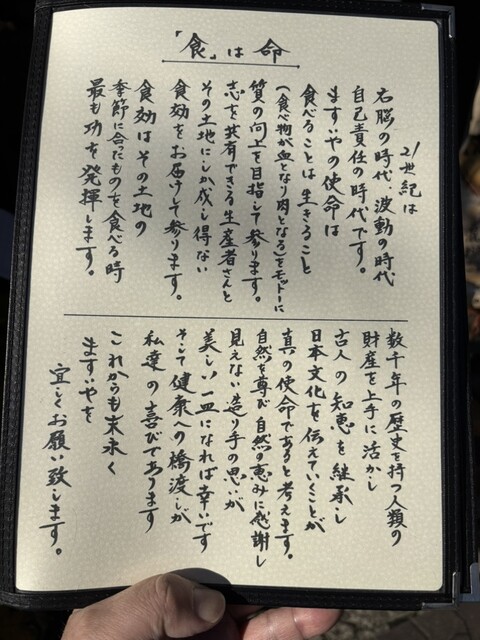 「食」は 命
21世紀は
右脳の時代、波動の時代
自己責任の時代です。
ますいやの使命は
食べることは生きること
(食べ物が血となり肉となる)をモットーに
質の向上を目指して参ります。
志を共有できる生産者さんと
その土地にしか成し得ない
食効をお届けして参ります。
食効はその土地の
季節に合ったものを食べる時
最も功を発揮します。
数千年の歴史を持つ人類の
財産を上手に活かし
古人の知恵を継承し
日本文化を伝えていくことが
真の使命であると考えます。
自然を尊び自然の恵みに感謝し
見えない造り手の思いが
美しい一皿になれば幸いです
そして健康への橋渡しが
私達の喜びであります
これからも末永く
ますいやを
宜しくお願い致します。